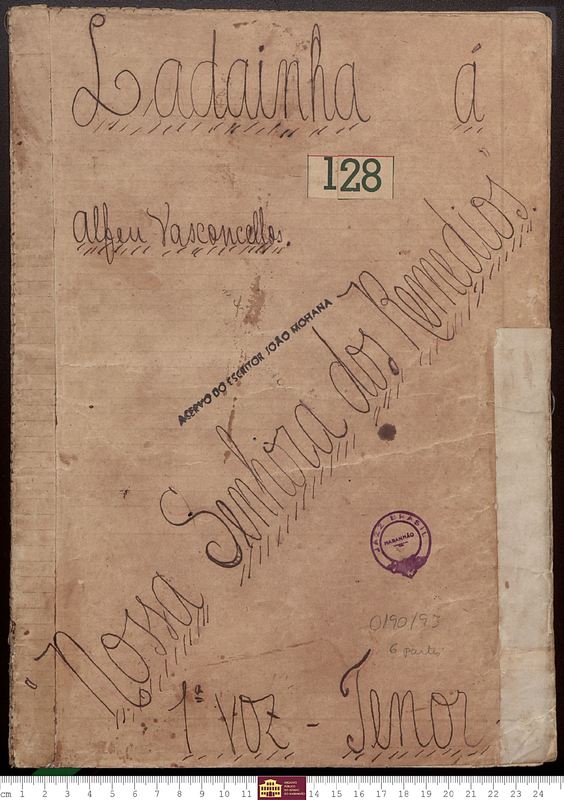 Ladainha á
128
Alfeu Vasconcellos.
Nossa Senhora dos Remedios.
ACERVO DO ESCRITOR JOÃO MOHANA
JAZZ BRASIL
MARANHÃO
0190/93
6 partes
1ª voz - Tenor
cm 1 2 3 4 5 6 7 8 9 10 11 14 15 16 17 18 19 20 21 22 23 24
ARQUIVO PÚBLICO DO ESTADO DO MARANHÃO